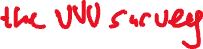 the VVV survey